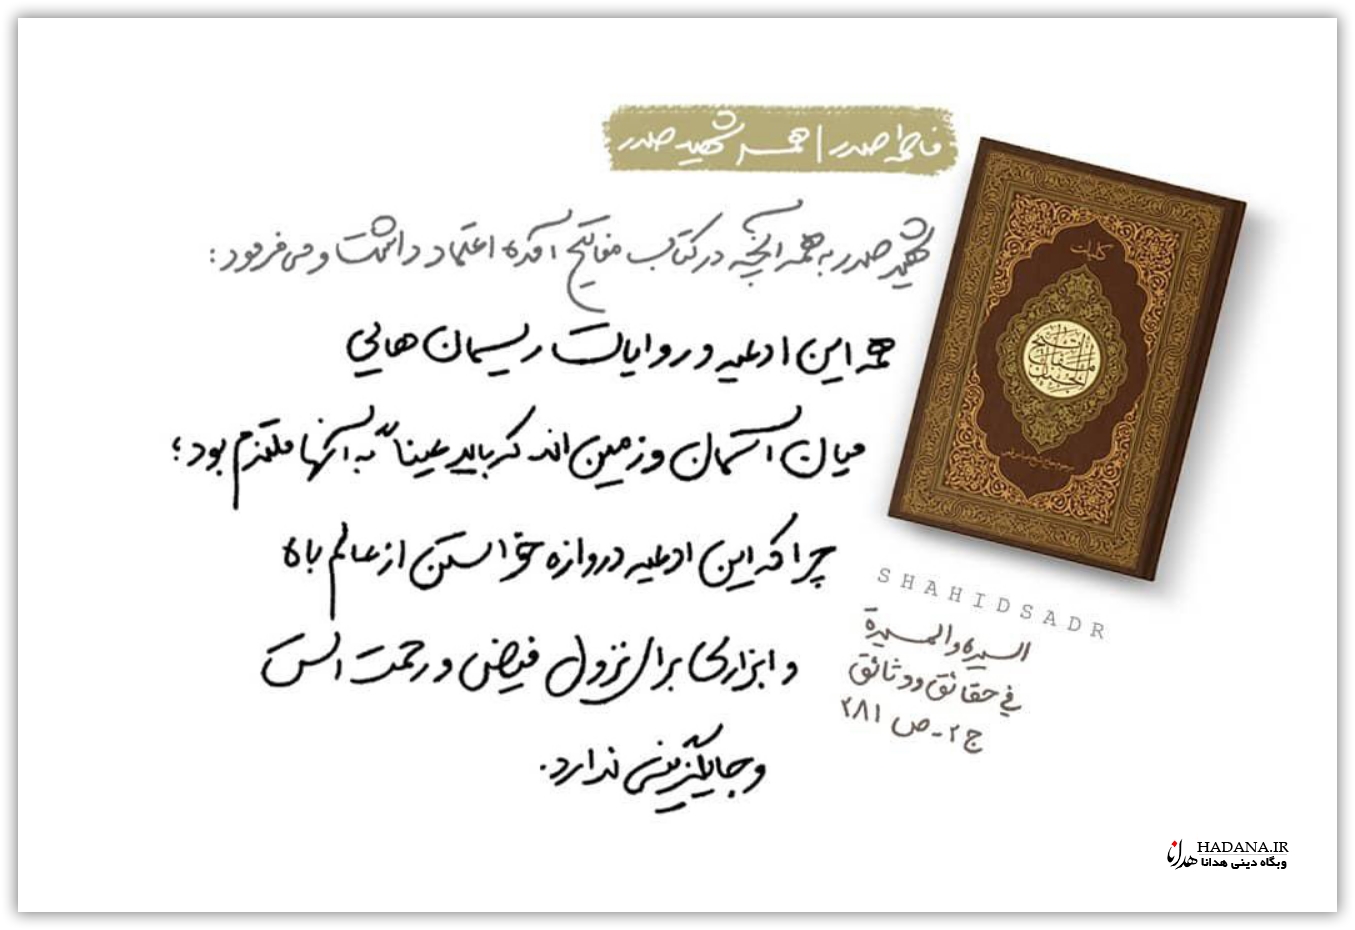 فاطمه صدر | همسر شهید صدر
شهید صدر به همه آنچه در کتاب مفاتیح آمده اعتماد داشت و می‌فرمود :
همه این ادعیه و روایات ریسمان هایی
میان آسمان و زمین اند که باید عیناً به آنها ملتزم بود ؛
چرا که این ادعیه دروازه خواستن از عالم بالا
و ابزاری برای نزول فیض و رحمت است
و جایگزینی ندارد.
کلیات
مفاتیح
الجنان
SHAHIDSADR
السیرة والمسیرة
في حقائق ووثائق
ج ۲ - ص ۲۸۱
HADANA.IR
وبگاه دینی هدانا
هدانا